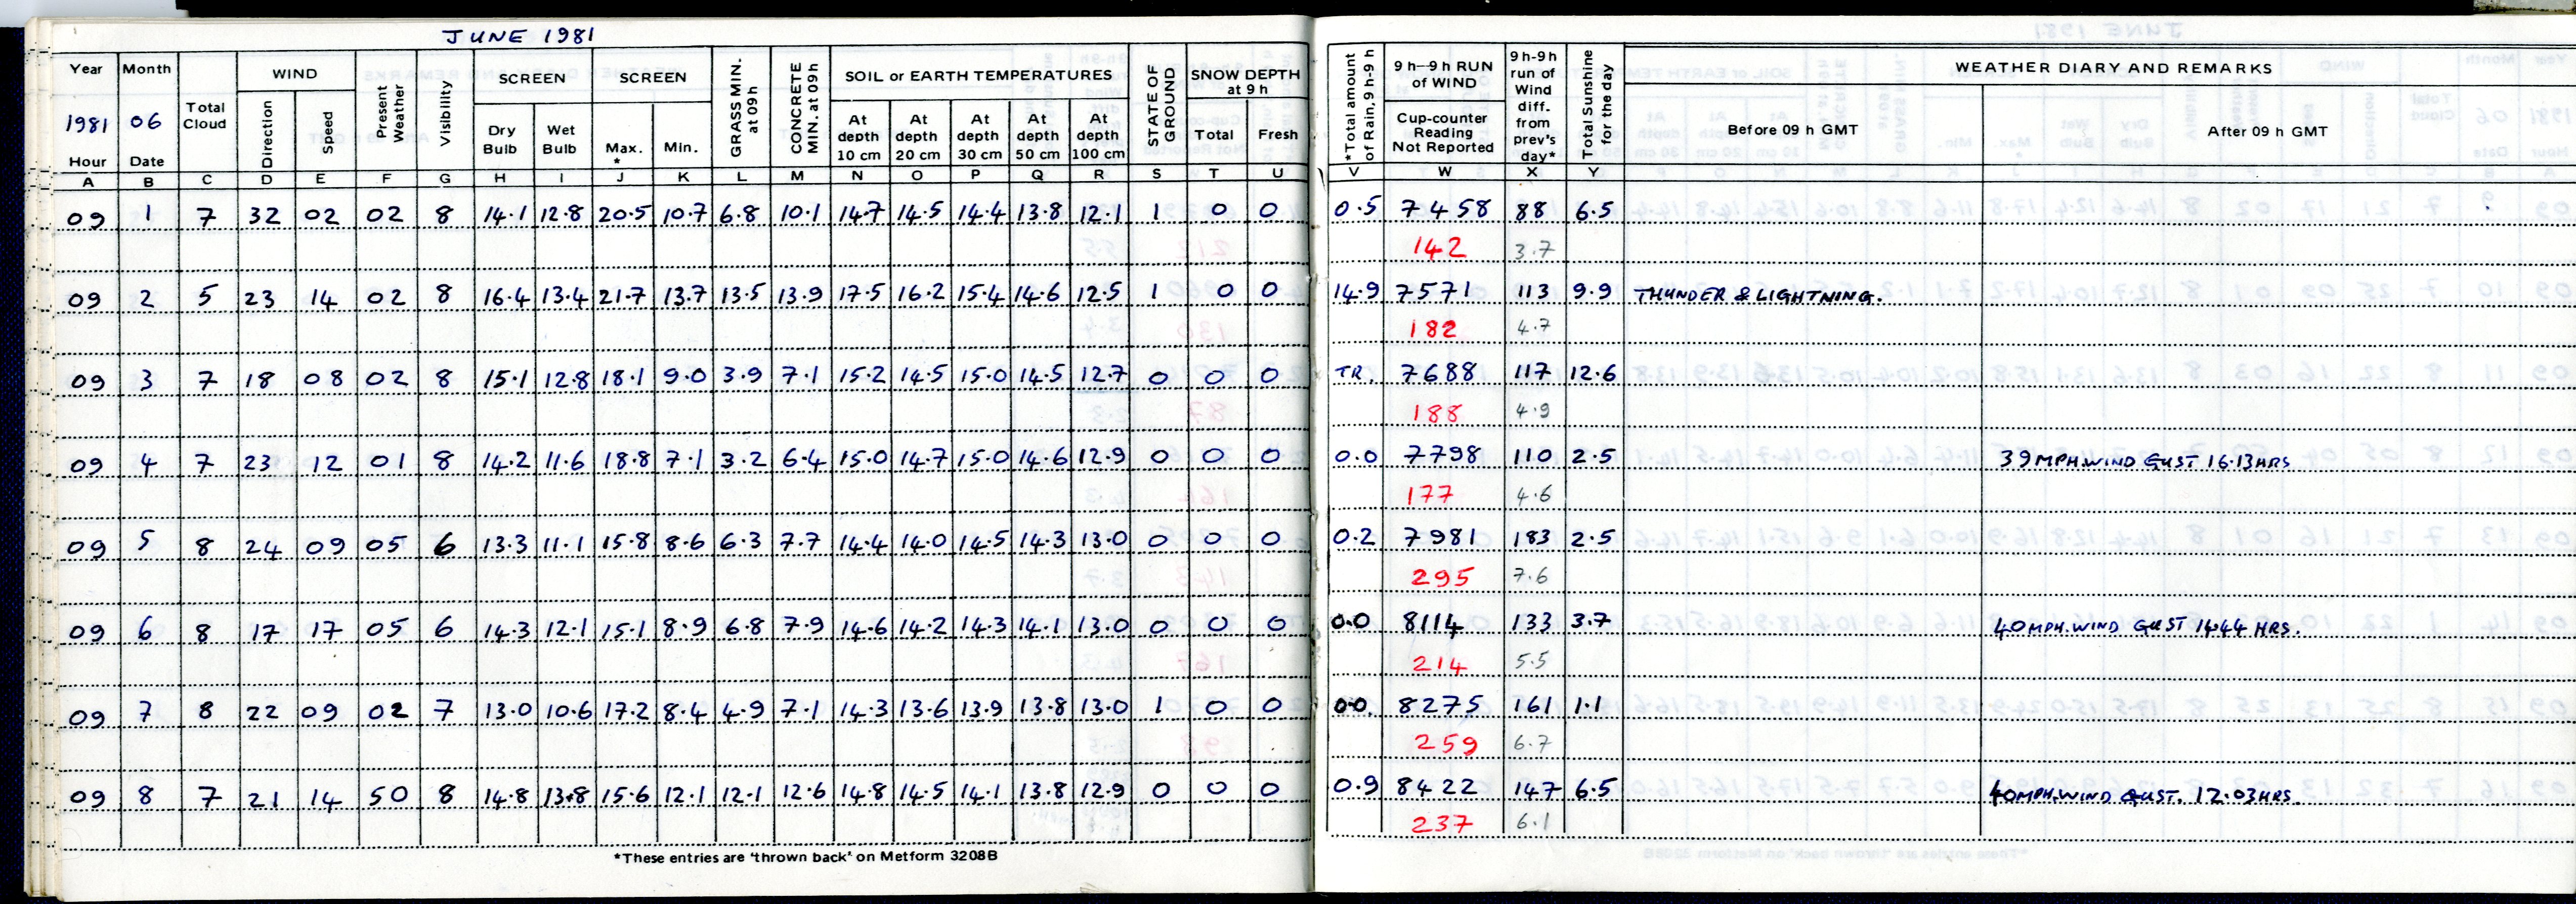 JUNE 1981
Year Month WIND SCREEN SCREEN SOIL or EARTH TEMPERATURES SNOW DEPTH at 9 h
1981 06 Total Cloud Direction Speed Present Weather Visibility Dry Bulb Wet Bulb Max. * Min. GRASS MIN. at 09 h CONCRETE MIN. at 09 h At depth 10 cm At depth 20 cm At depth 30 cm At depth 50 cm At depth 100 cm STATE OF GROUND Total Fresh
Hour Date
*Total amount of Rain, 9 h-9 h 9 h—9 h RUN of WIND Cup-counter Reading Not Reported 9 h-9 h run of Wind diff. from prev's day* Total Sunshine for the day WEATHER DIARY AND REMARKS
Before 09 h GMT After 09 h GMT
A B C D E F G H I J K L M N O P Q R S T U V W X Y
09 1 7 32 02 02 8 14.1 12.8 20.5 10.7 6.8 10.1 14.7 14.5 14.4 13.8 12.1 1 0 0 0.5 7458 88 6.5
142 3.7
09 2 5 23 14 02 8 16.4 13.4 21.7 13.7 13.5 13.9 17.5 16.2 15.4 14.6 12.5 1 0 0 14.9 7571 113 9.9 THUNDER & LIGHTNING.
182 4.7
09 3 7 18 08 02 8 15.1 12.8 18.1 9.0 3.9 7.1 15.2 14.5 15.0 14.5 12.7 0 0 0 TR. 7688 117 12.6
188 4.9
09 4 7 23 12 01 8 14.2 11.6 18.8 7.1 3.2 6.4 15.0 14.7 15.0 14.6 12.9 0 0 0 0.0 7798 110 2.5 39 MPH.WIND GUST 16.13HRS
177 4.6
09 5 8 24 09 05 6 13.3 11.1 15.8 8.6 6.3 7.7 14.4 14.0 14.5 14.3 13.0 0 0 0 0.2 7981 183 2.5
295 7.6
09 6 8 17 17 05 6 14.3 12.1 15.1 8.9 6.8 7.9 14.6 14.2 14.3 14.1 13.0 0 0 0 0.0 8114 133 3.7 40MPH.WIND GUST 1444 HRS.
214 5.5
09 7 8 22 09 02 7 13.0 10.6 17.2 8.4 4.9 7.1 14.3 13.6 13.9 13.8 13.0 1 0 0 0.0. 8275 161 1.1
259 6.7
09 8 7 21 14 50 8 14.8 13.8 15.6 12.1 12.1 12.6 14.8 14.5 14.1 13.8 12.9 0 0 0 0.9 8422 147 6.5 40MPH.WIND GUST. 12.03HRS.
237 6.1
*These entries are 'thrown back' on Metform 3208B